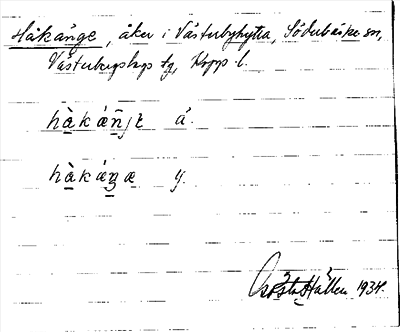 Håkänge, åker i Västerbyhytta, Söderbärke sn,
Västerbergslags fg, Kopp. l.
hà̱k á̱ñjt å.
hà̱k áŋæ y.
Gösta Hallén 1934.